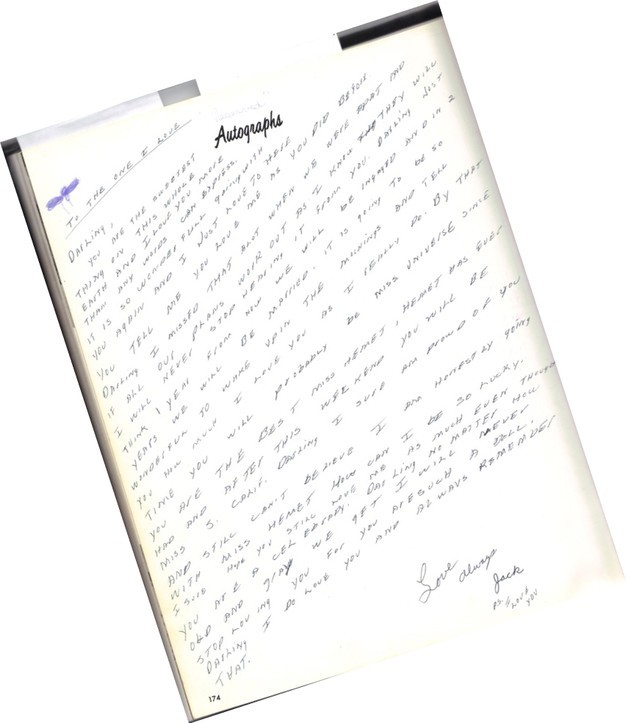 Autographs
TO THE ONE I LOVE
DARLING,
YOU ARE THE SWEETEST
THING ON THIS WHOLE
EARTH AND I LOVE YOU MORE
THAN ANY WORDS CAN EXPRESS.
IT IS SO WONDERFULL GOING WITH
YOU AGAIN AND I JUST LOVE TO HEAR
YOU TELL ME YOU LOVE ME AS YOU DID BEFORE.
DARLING I MISSED THAT ALOT WHEN WE WERE APART AND
IF ALL OUR PLANS WORK OUT AS I KNOW THEY WILL
I WILL NEVER STOP HEARING IT FROM YOU. DARLING JUST
THINK 1 YEAR FROM NOW WE WILL BE ENGAGED AND IN 2
YEARS WE WILL BE MARRIED. IT IS GOING TO BE SO
WONDERFUN TO WAKE UP IN THE MORNINGS AND TELL
YOU HOW MUCH I LOVE YOU AS I REALLY DO. BY THAT
TIME YOU WILL PROBABLY BE MISS UNIVERSE SINCE
YOU ARE THE BEST MISS HEMET, HEMET HAS EVER
HAD AND AFTER THIS WEEKEND YOU WILL BE
MISS S. CALIF. DARLING I SURE AM PROUD OF YOU
AND STILL CAN'T BELIEVE I AM HONESTLY GOING
WITH MISS HEMET HOW CAN I BE SO LUCKY.
I SURE HOPE YOU STILL LOVE ME AS MUCH EVEN THOUGH
YOU ARE A CELEBRARY. DARLING NO MATTER HOW
OLD AND GRAY WE GET I WILL NEVER
STOP LOVING YOU FOR YOU ARE SUCH A DOLL.
DARLING I DO LOVE YOU AND ALWAYS REMEMBER
THAT.
Love
always
Jack
P.S. I LOVE
YOU
174